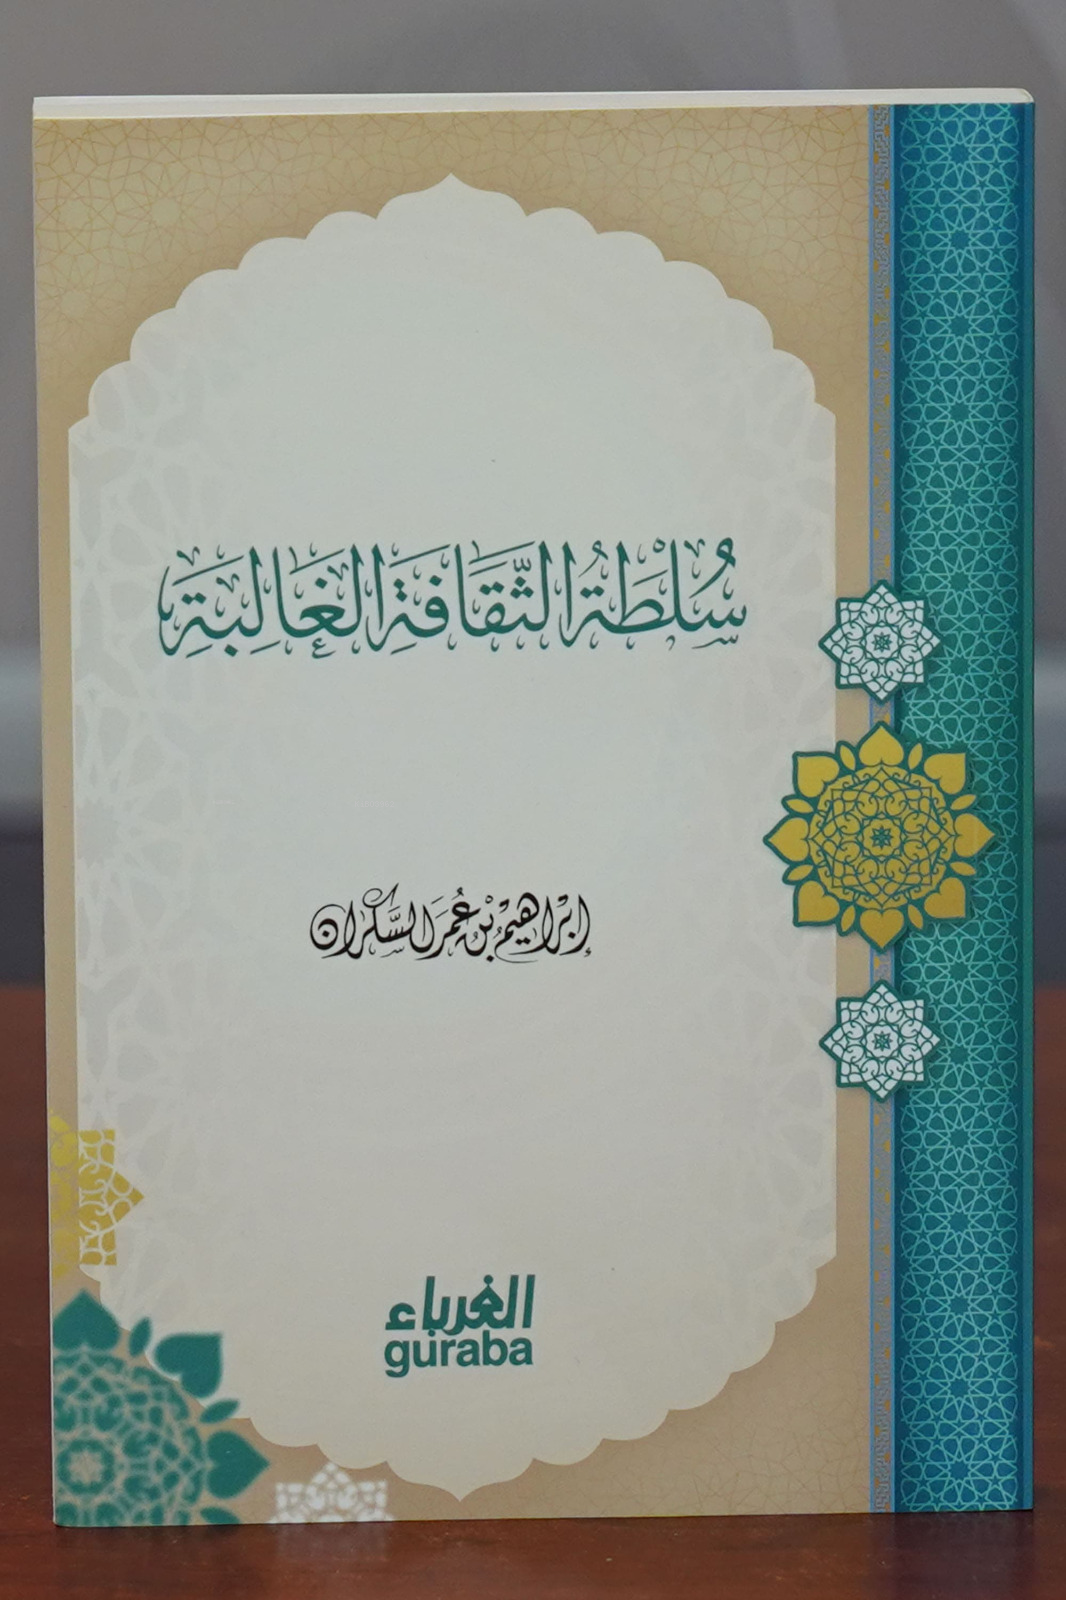 سُلْطَةُ الثَّقَافَةِ الغَالِبَةِ
إِبْرَاهِيمُ بْنُ عُمَرَ السَّكْرَان
الغرباء
guraba